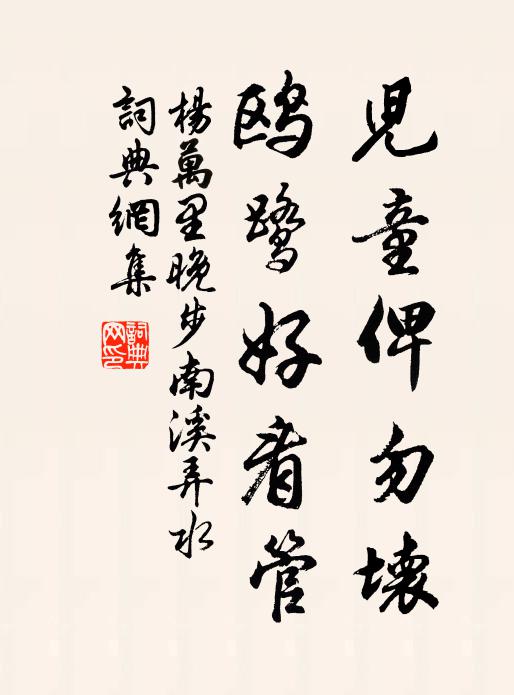 兒童俾勿壞
鸥鹭好看管
楊萬里晚步南溪弄水
詞典網集
詞典网印